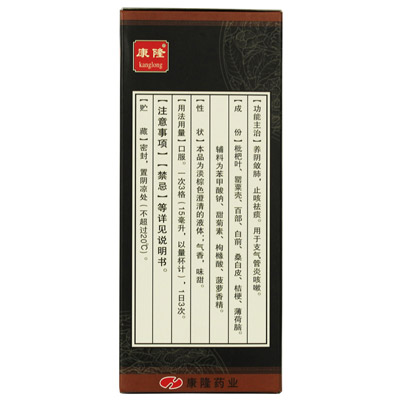 康隆
kanglong
【功能主治】养阴敛肺，止咳祛痰。用于支气管炎咳嗽。
【成　份】枇杷叶、罂粟壳、百部、白前、桑白皮、桔梗、薄荷脑。
辅料为苯甲酸钠、甜菊素、枸橼酸、菠萝香精。
【性　状】本品为淡棕色澄清的液体；气香，味甜。
【用法用量】口服。一次3格（15毫升，以量杯计），1日3次。
【注意事项】【禁忌】等详见说明书。
【贮　藏】密封，置阴凉处（不超过20℃）。
康隆药业